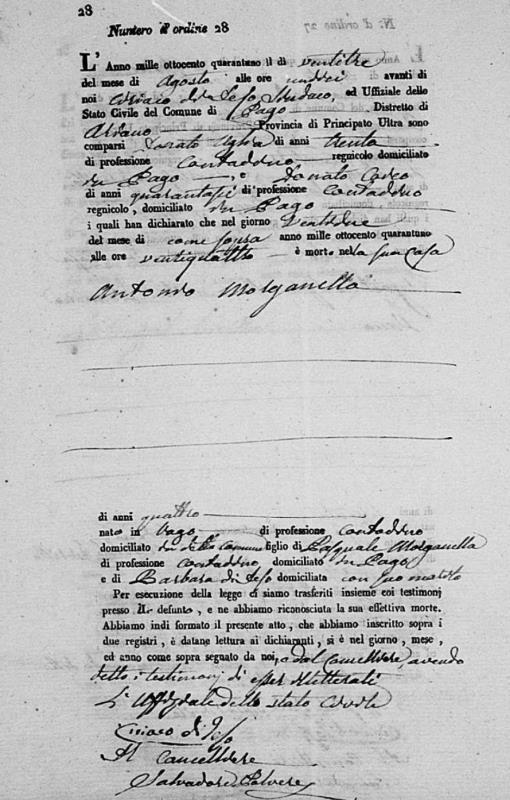 28
Numero d'ordine 28
L'Anno mille ottocento quarantuno il dì ventitre
del mese di Agosto alle ore undici avanti di
noi Ciriaco di Teso Sindaco, ed Uffiziale dello
Stato Civile del Comune di Pago Distretto di
Ariano Provincia di Principato Ultra sono
comparsi Donato di anni trenta
di professione contadino regnicolo domiciliato
in Pago, e Donato
di anni quarantasei di professione contadino
regnicolo, domiciliato in Pago
i quali han dichiarato che nel giorno ventidue
del mese di come sopra anno mille ottocento quarantuno
alle ore ventiquattro è morto nella sua casa
Antonio Morganella
di anni quattro
nato in Pago di professione contadino
domiciliato in detto Comune figlio di Pasquale Morganella
di professione contadino, domiciliato in Pago
e di Barbara di Teso domiciliata con suo marito
Per esecuzione della legge ci siamo trasferiti insieme coi testimonj
presso il defunto, e ne abbiamo riconosciuta la sua effettiva morte.
Abbiamo indi formato il presente atto, che abbiamo inscritto sopra i
due registri, è datane lettura ai dichiaranti, si è nel giorno, mese,
ed anno come sopra segnato da noi, e dal Cancelliere avendo
detto i testimonj di esser illetterati
L'Uffiziale dello stato civile
Ciriaco di Teso
Il Cancelliere
Salvadore Polvere